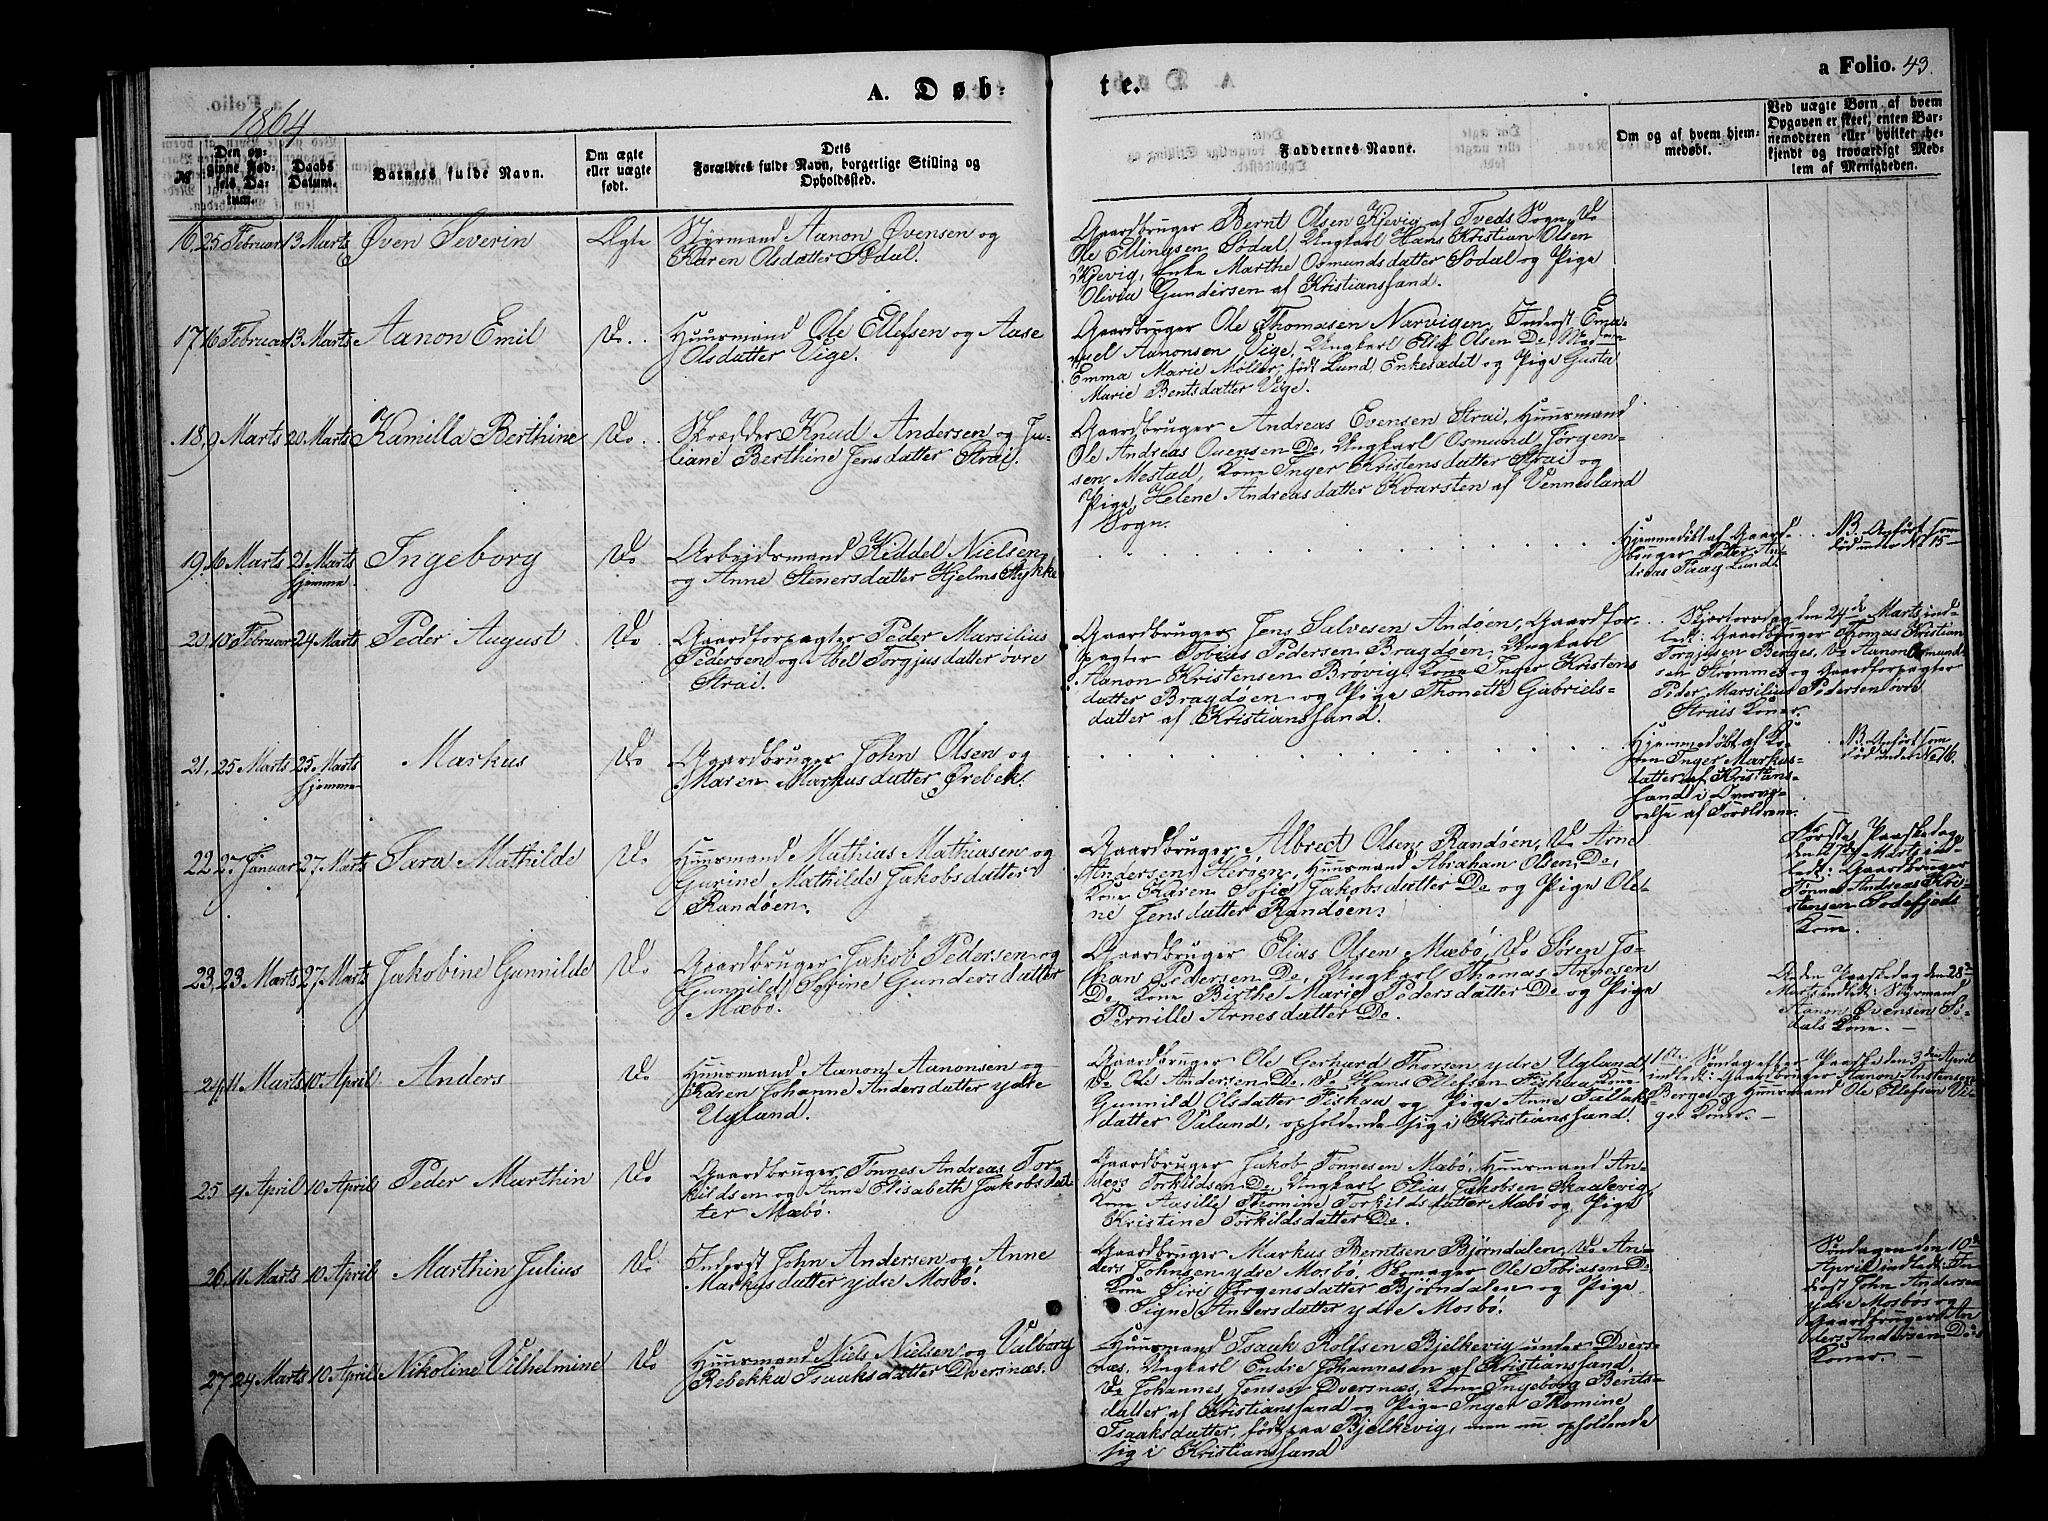 A. Døb-
te.
a Folio. 43.
1864
№
Den op-
givne Fød-
sels Da-
tum.
Daabs
Datum.
Barnets fulde Navn.
Om ægte
eller uægte
født.
Dets
Forældres fulde Navn, borgerlige Stilling og
Opholdssted.
Faddernes Navne.
Om og af hvem hjem-
medøbt.
Ved uægte Børn af hvem
Opgaven er skeet, enten Bar-
nemoderen eller hvilket be-
kjendt og troværdigt Med-
lem af Menigheden.
16, 25 Februar 13 Marts Øven Severin Ægte
Styrmand Aanon Øvensen og
Karen Olsdatter Sødal.
Gaardbruger Bernt Olsen Kjevig af Tveds Sogn, Do
Ole Ellingsen Sødal, Ungkarl Hans Kristian Olsen
Kjevig, Enke Marthe Osmundsdatter Sødal og Pige
Olivia Gundersen af Kristianssand.
17, 16 Februar 13 Marts Aanon Emil Do
Huusmand Ole Ellefsen og Aase
Olsdatter Vige.
Gaardbruger Ole Thomasen Narvigen, Inderst Ema-
nuel Aanonsen Vige, Ungkarl Ellef Olsen De, Madam
Emma Marie Møller, født Lund, Enkesædet og Pige Gusta
Marie Bentsdatter Vige.
18, 9 Marts 20 Marts Kamilla Berthine Do
Skrædder Knud Andersen og Ju-
liane Berthine Jensdatter Strai.
Gaardbruger Andreas Evensen Strai, Huusmand
Ole Andreas Ovensen De, Ungkarl Osmund Jørgen-
sen Mestad, Kone Inger Kristensdatter Strai og
Pige Helene Andreasdatter Kvarsten af Vennesland
Sogn.
19, 16 Marts 21 Marts Ingeborg Do
hjemme
Arbeidsmand Keddel Nielsen
og Anne Stenersdatter Hjelms Stykke
Hjemmedøbt af Gaard-
bruger Peder An-
dreas Faag Lund.
NB. Anført som
død under No 15
20, 18 Februar 24 Marts Peder August Do
Gaardforpagter Peder Marsilius
Pedersen og Abel Torgjusdatter øvre
Strai.
Gaardbruger Jens Salvesen Andøen, Gaardfor-
pagter Tobias Pedersen Bragdøen, Ungkarl
Aanon Kristensen Brøvig, Kone Inger Kristens
datter Bragdøen og Pige Thonette Gabriels-
datter af Kristianssand.
Skjærtorsdag den 24de Marts ind-
ledt: Gaardbruger Thomas Kristian
Torgjusen Berges, Do Aanon Osmund-
sen Strømmes og Gaardforpagter
Peder Marsilius Pedersen øvre
Strais Koner.
21, 25 Marts 25 Marts Markus Do
hjemme
Gaardbruger John Olsen og
Maren Markusdatter Ørebek.
Hjemmedøbt af Ko-
nen Inger Markus-
datter af Kristians-
sand i Overvæ-
relse af Forældrene.
NB. Anført som
død under No 16.
22 27 Januar 27 Marts Sara Mathilde Do
Huusmand Mathias Mathiasen og
Gurine Mathilde Jakobsdatter
Randøen.
Gaardbruger Albrect Olsen Randøen, Do Arne
Andersen Herøen, Huusmand Abraham Olsen De,
Kone Karen Sofie Jakobsdatter De og Pige Ole-
ne Jensdatter Randøen.
Første Paaskedag
den 27de Marts ind-
ledt: Gaardbruger
Tønnes Andreas Kri-
stensen Sodefjeds
Kone.
23, 23 Marts 27 Marts Jakobine Gunnilde Do
Gaardbruger Jakob Pedersen og
Gunnild Serine Gundersdatter
Mæbø.
Gaardbruger Elias Olsen Mæbø, Do Søren Jo-
han Pedersen De, Ungkarl Thomas Arnesen
De, Kone Birthe Marie Pedersdatter De og Pige
Pernille Arnesdatter De.
Anden Paaskedag den 28de
Marts indledt: Styrmand
Aanon Øvensen Sø-
dals Kone.
24, 11 Marts 10 April Anders Do
Huusmand Aanon Aanonsen og
Karen Johanne Andersdatter ydre
Ugland.
Gaardbruger Ole Gerhard Thorsen ydre Ugland,
Do Ole Andersen De, Do Hans Ellefsen Fiskaa, Kone
Gunnild Olsdatter Fiskaa og Pige Anne Tallaks-
datter Valand, opholdende sig i Kristianssand.
1ste Søndag efter Paaske den 3die April
indledt: Gaardbruger Aanon Anstensen
Berges og Huusmand Ole Ellefsen Vi-
ges Koner.
25 4 April 10 April Peder Marthin Do
Gaardbruger Tønnes Andreas Tor-
kildsen og Anne Elisabeth Jakobsdat-
ter Mæbø.
Gaardbruger Jakob Tønnesen Mæbø, Huusmand An-
ders Torkildsen De, Ungkarl Elias Jakobsen Skaalevig,
Kone Aasille Thomine Torkildsdatter Mæbø og Pige
Kristine Torkildsdatter De.
26, 11 Marts 10 April Marthin Julius Do
Inderst John Andersen og Anne
Markusdatter ydre Mosbø.
Gaardbruger Markus Berntsen Bjørndalen, Do An-
ders Johnsen ydre Mosbø, Skomager Ole Tobiasen De,
Kone Siri Jørgensdatter Bjørndalen og Pige
Signe Andersdatter ydre Mosbø.
Søndagen den 10de
April indledt: In-
derst John Andersen
ydre Mosbøs og
Gaardbruger An-
ders Andersen De's
Koner.
27 24 Marts 10 April Nikoline Vilhelmine Do
Huusmand Niels Nielsen og Valborg
Rebekka Isaaksdatter Dversnæs.
Huusmand Isaak Rolfsen Bjelkevig under Dvers-
næs, Ungkarl Endre Johannesen af Kristianssand,
Do Johannes Jensen Dversnæs, Kone Ingeborg Bernts-
datter af Kristianssand og Pige Inger Thomine
Isaaksdatter, født paa Bjelkevig, men nu opholdende
sig i Kristianssand